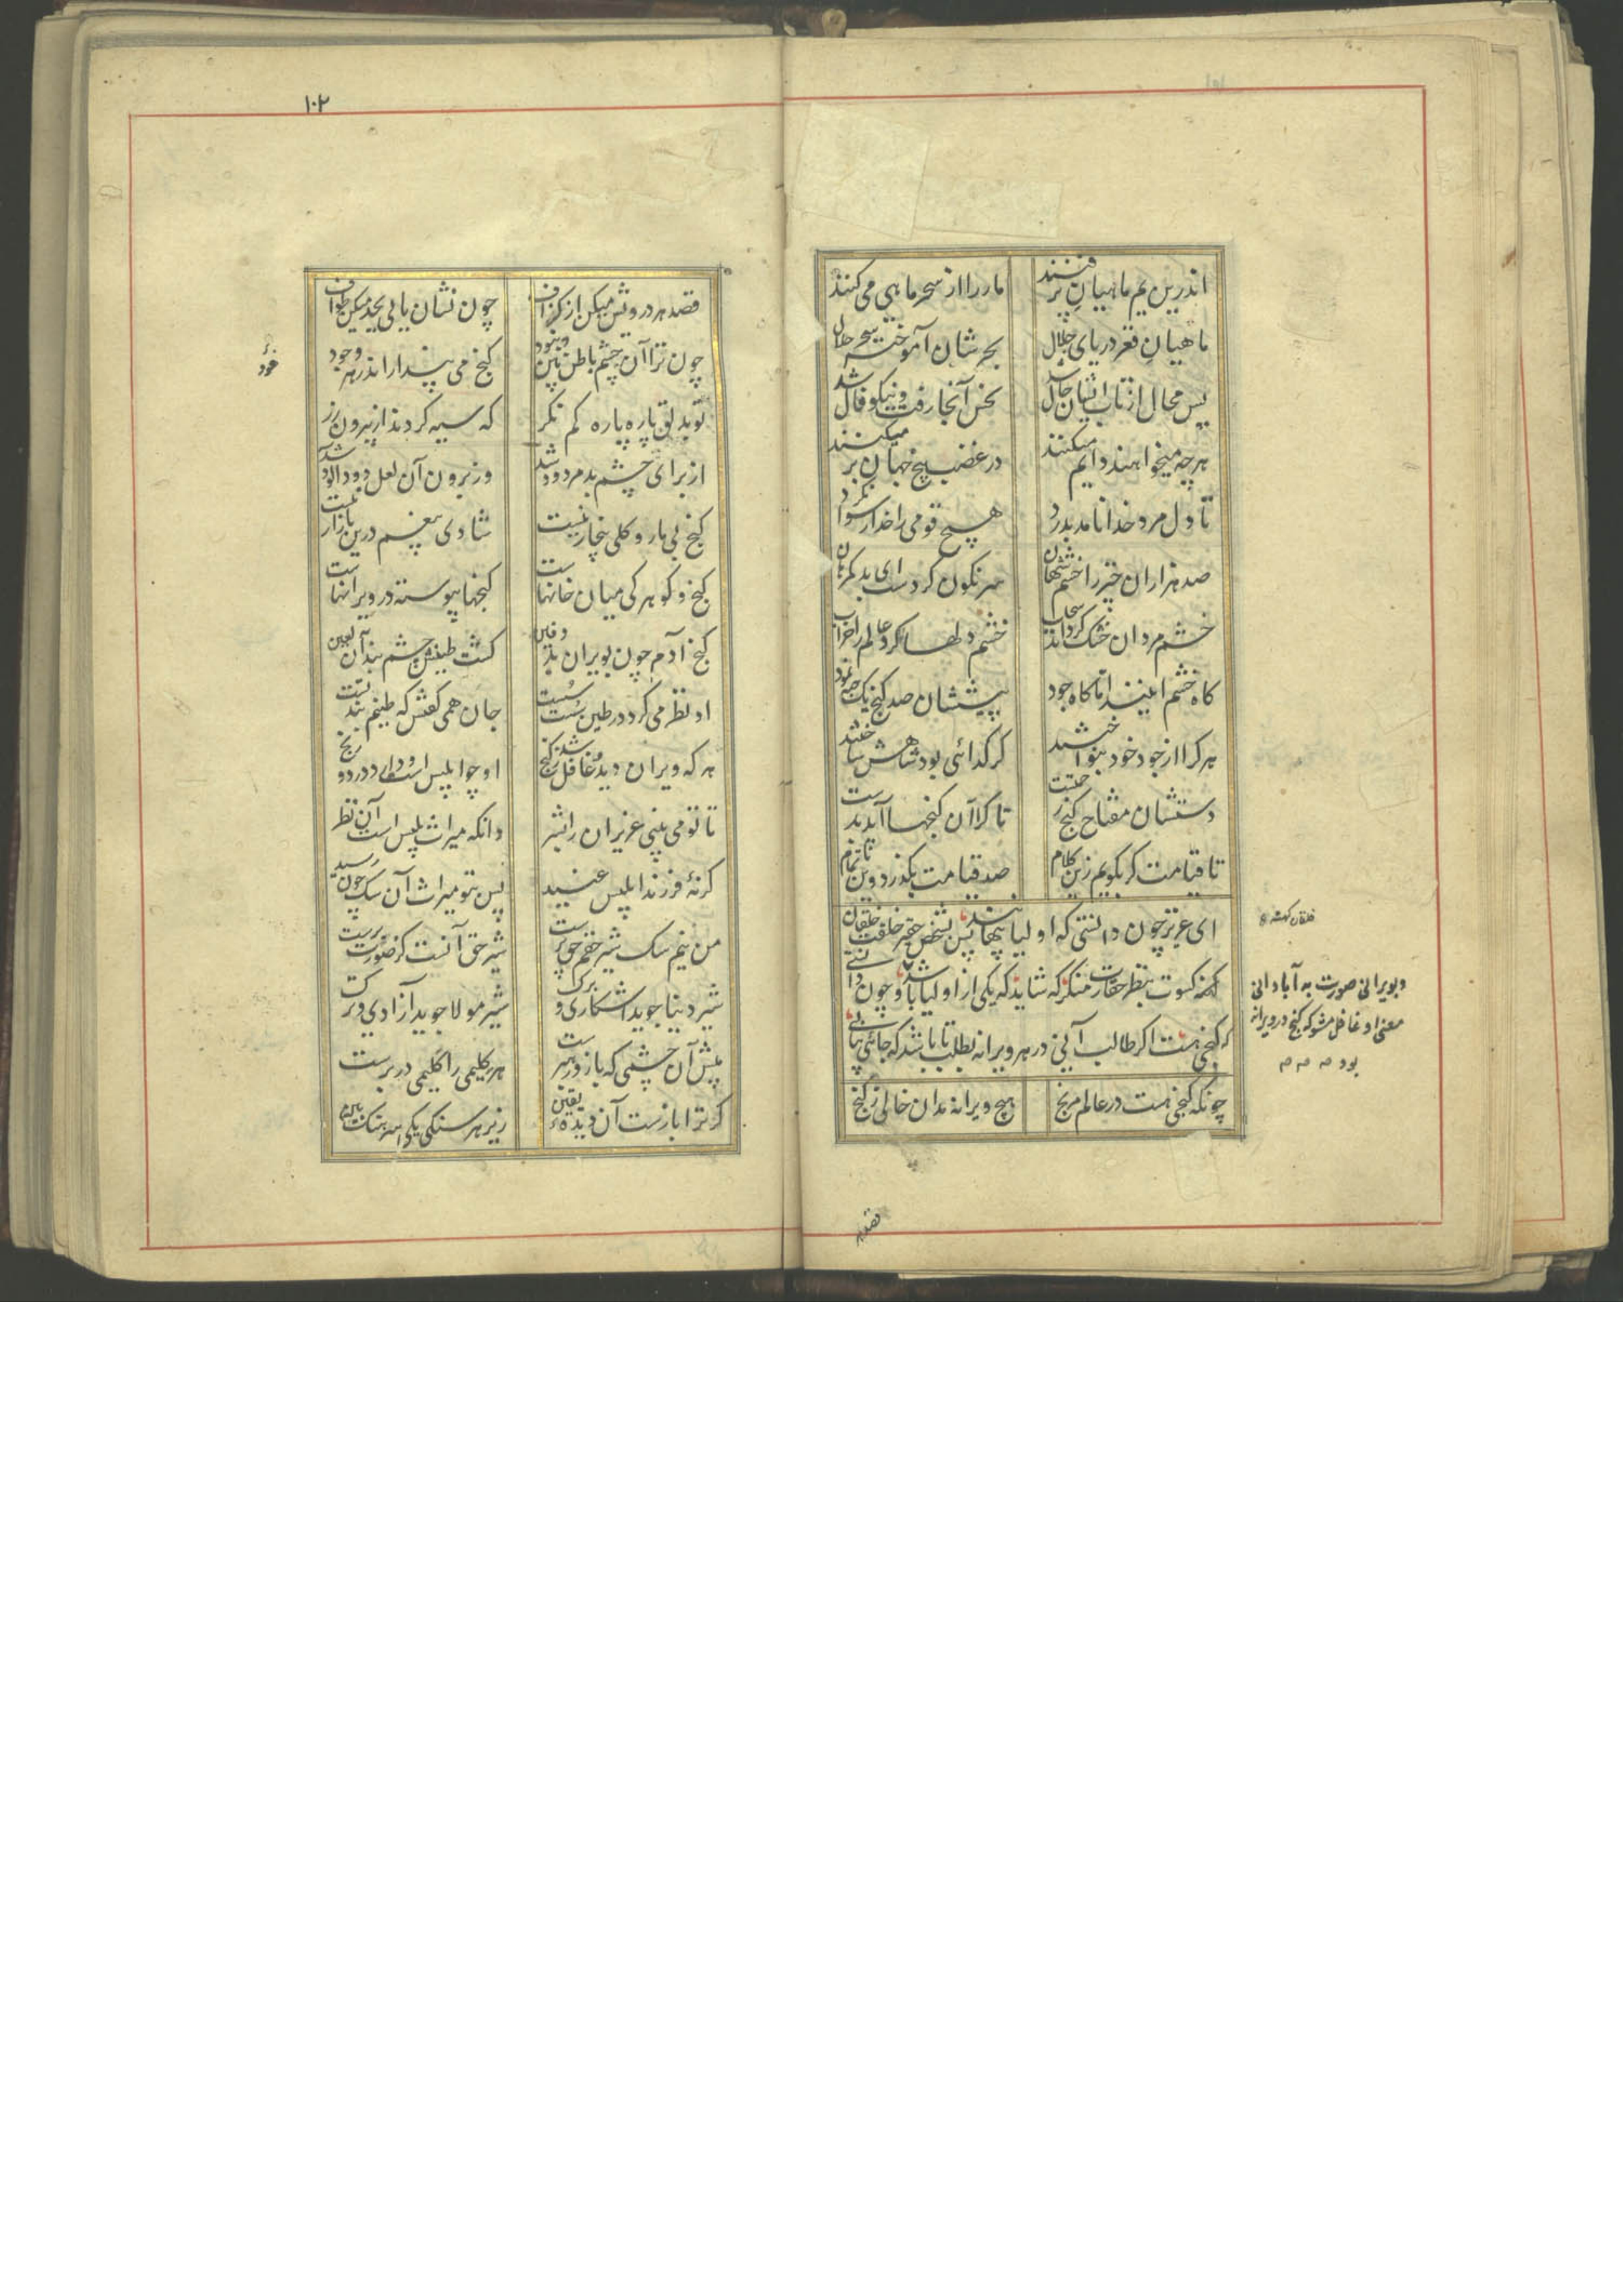 اندرین یم ماهیان پر فنند
مار را از سحر ماهی می کنند
ماهیان قعر دریای جلال
بحر شان آموخته سحر حلال
پس محال از تاب ایشان حال شد
نحس آنجا رفت و نیکو فال شد
هر چه میخواهند دایم میکنند
در غضب بر میکنند
تا دل مرد خدا نامد بدرد
هیچ قومی را خدا رسوا نکرد
صد هزاران خیر را خشم شهان
سرنگون کردست ای بد کمرهان
خشم مردان خشک کرداند سحاب
خشم دلها کرد عالم را خراب
کاه خشم اینند اما کاه جود
پیششان صد کنج یک حبه نمود
هر کرا از جود خود بنواختند
کر کدائی بود شاهش ساختند
دستشان مفتاح کنج رحمتت
تا کرا آن کنجها آید بدست
تا قیامت کر بکویم زین کلام
صد قیامت بکذرد وین ناتمام
ای عزیز چون دانستی که اولیا پنهانند پس بشخص حقیر خلقت خلقان
کهنه کسوت بنظر حقارت منکر که شاید که یکی از اولیا باشد و چون دانستی
که کنجی هست اکر طالب آنی در هر ویرانه بطلب تا باشد که جائی بیابی
چونکه کنجی هست در عالم مرنج
هیچ ویرانه مدان خالی ز کنج
خلقان کهنه
و بویرانی صورت به آبادانی
معنی او غافل مشو که کنج در ویرانه
بود
قصد هر
۱۰۲
قصد هر درویش میکن از کزاف
چون نشان یابی بجد میکن طواف
چون ترا آن چشم باطن بین نبود
کنج می پندار اندر هر وجود
خود
تو بدلق پاره پاره کم نکر
که سیه کردند از بیرون زر
از برای چشم بد مردود شد
وز برون آن لعل دود آلود شد
کنج بی مار و کلی بیخار نیست
شادی بیغم درین بازار نیست
کنج و کوهر کی میان خانهاست
کنجها پیوسته در ویرانهاست
کنج آدم چون بویران بد دفین
کشت طینش چشم بند آن لعین
او نظر می کرد در طین سست سست
جان همی کفتش که طینم بند تست
هر که ویران دید و غافل شد ز کنج
او چو ابلیس است و دارد درد و رنج
تا تو می بینی عزیزان را بشر
دانکه میراث بلیس است آن نظر
کر نهٔ فرزند ابلیس عنید
پس بتو میراث آن سک چون رسید
من نیم سک شیر حقم حق پرست
شیر حق آنست کز صورت برست
شیر دنیا جوید اشکاری و برک
شیر مولا جوید آزادی و مرک
پیش آن چشمی که باز و رهبرست
هر کلیمی را کلیمی در برست
کر ترا بازست آن دیده یقین
زیر هر سنکی یکی سرهنک بین